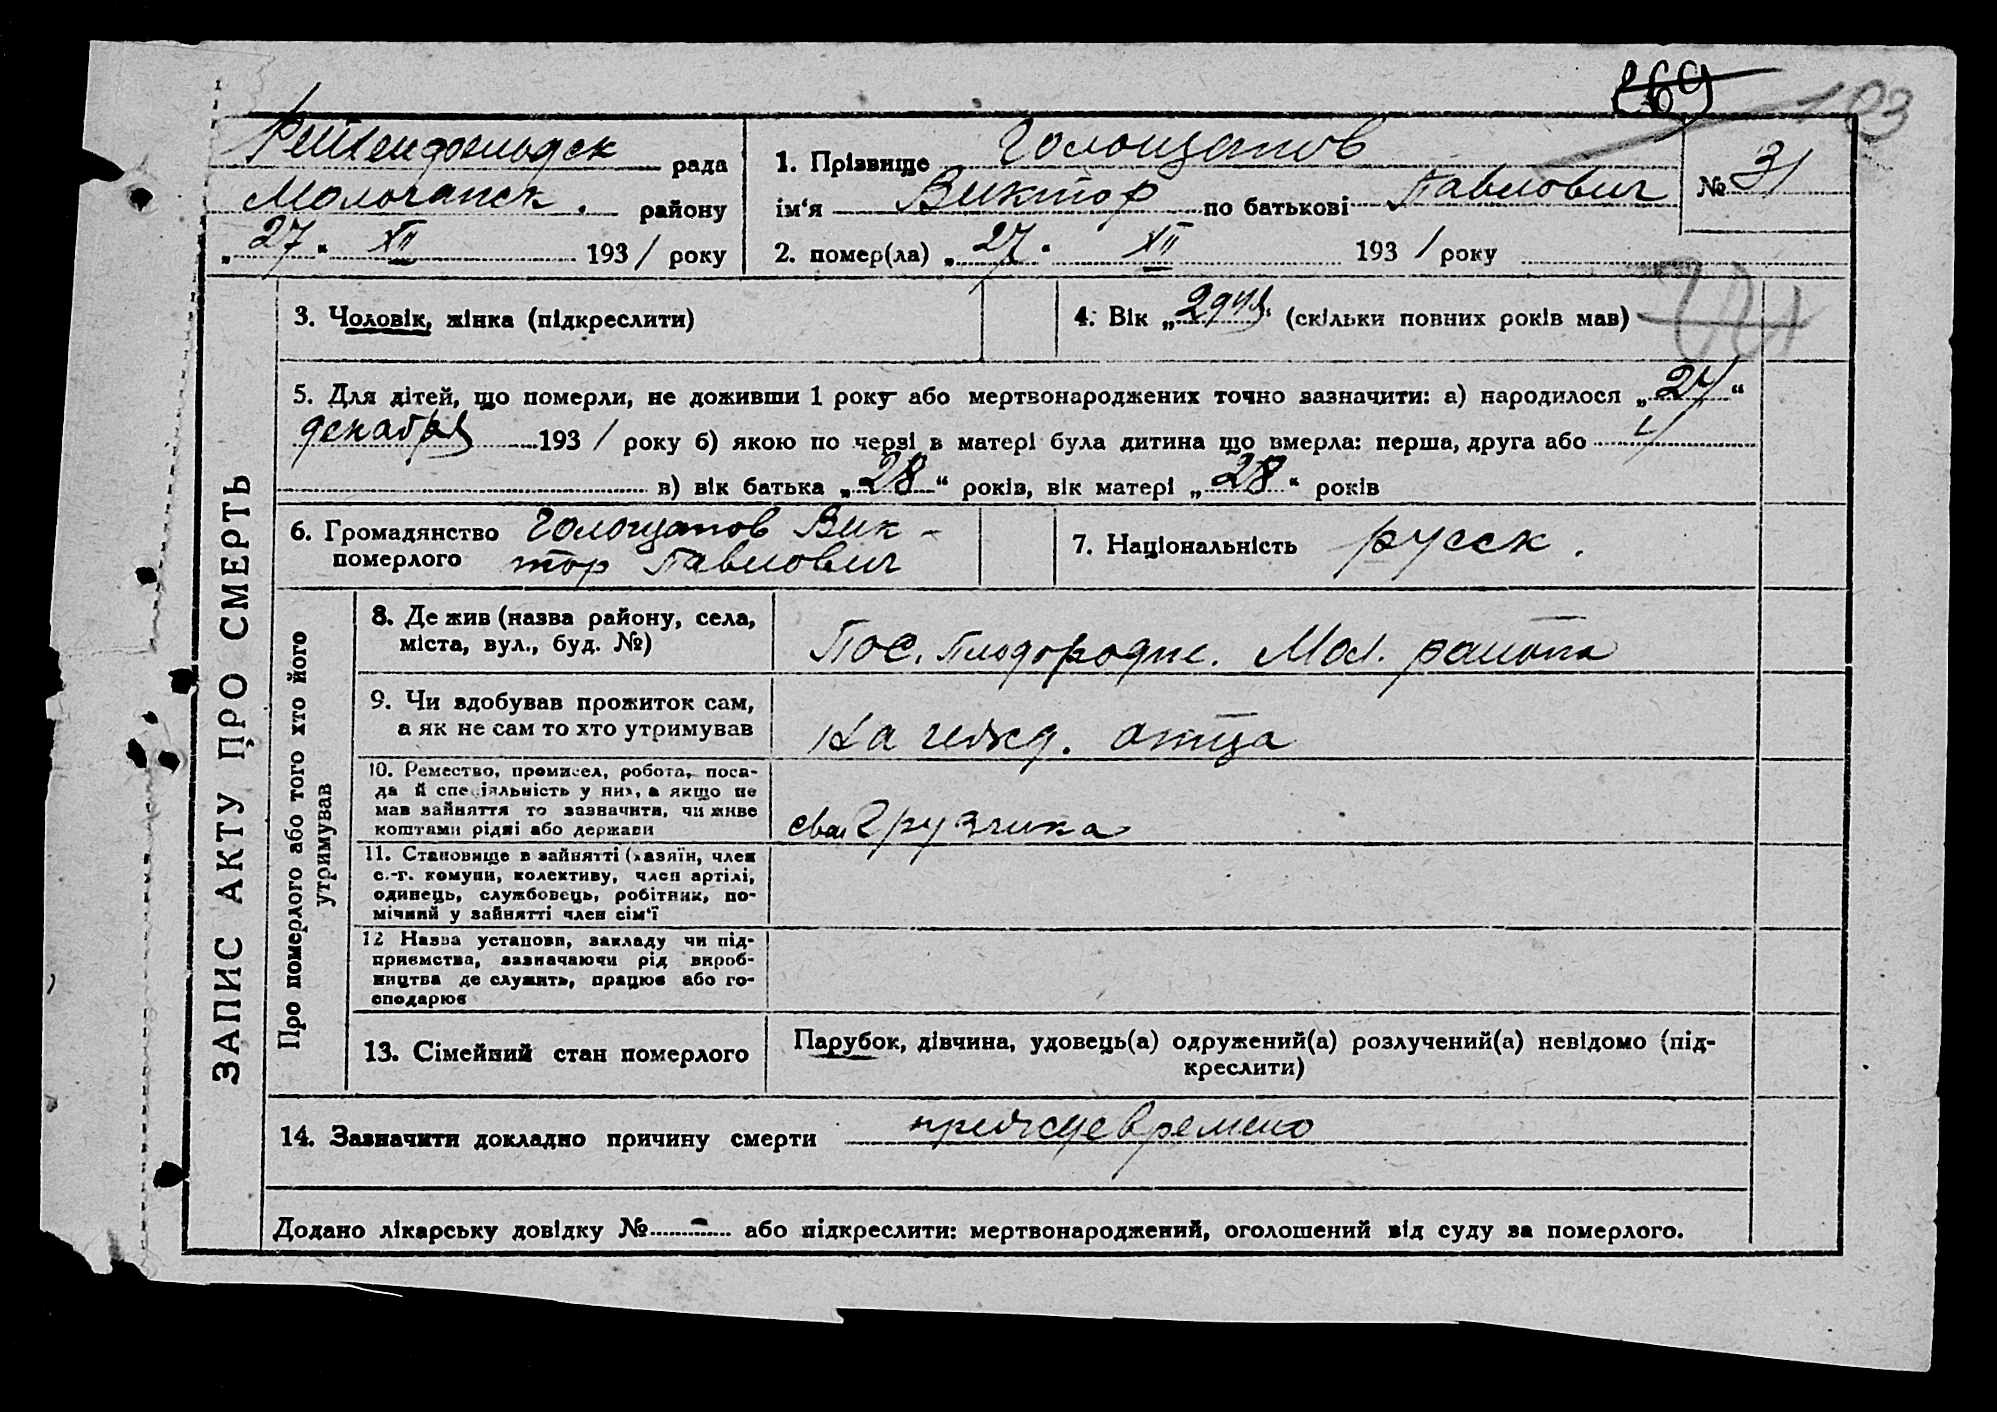 269 103
Рейхенфельдск рада
Молочанск. району
„27“ XII 1931 року
1. Прізвище Голощапов
ім‘я Виктор по батькові Павлович
№ 31
2. помер(ла) „27“ XII 1931 року
3. Чоловік, жінка (підкреслити)
4. Вік „2 дня“ (скільки повних років мав)
5. Для дітей, що померли, не доживши 1 року або мертвонароджених точно зазначити: а) народилося „24“
декабря 1931 року б) якою по черзі в матері була дитина що вмерла: перша, друга або
в) вік батька „28“ років, вік матері „28“ років
6. Громадянство Голощапов Вик-
померлого тор Павлович
7. Національність русск.
ЗАПИС АКТУ ПРО СМЕРТЬ
Про померлого або того хто його
утримував
8. Де жив (назва району, села,
міста, вул., буд. №)
Пос. Плодородне. Мол. района
9. Чи здобував прожиток сам,
а як не сам то хто утримував
На ижд. отца
10. Ремество, промисел, робота, поса-
да й спеціяльність у них, а якщо не
мав зайняття то зазначити, чи живе
коштами рідні або держави
грузчика
11. Становище в зайнятті (хазяїн, член
с.-г. комуни, колективу, член артілі,
одинець, службовець, робітник, по-
мічний у зайнятті член сім‘ї
12 Назва установи, закладу чи під-
приємства, зазначаючи рід вироб-
ництва де служить, працює або го-
сподарює
13. Сімейний стан померлого
Парубок, дівчина, удовець(а) одружений(а) розлучений(а) невідомо (під-
креслити)
14. Зазначити докладно причину смерти преждевремено
Додано лікарську довідку № - або підкреслити: мертвонароджений, оголошений від суду за померлого.